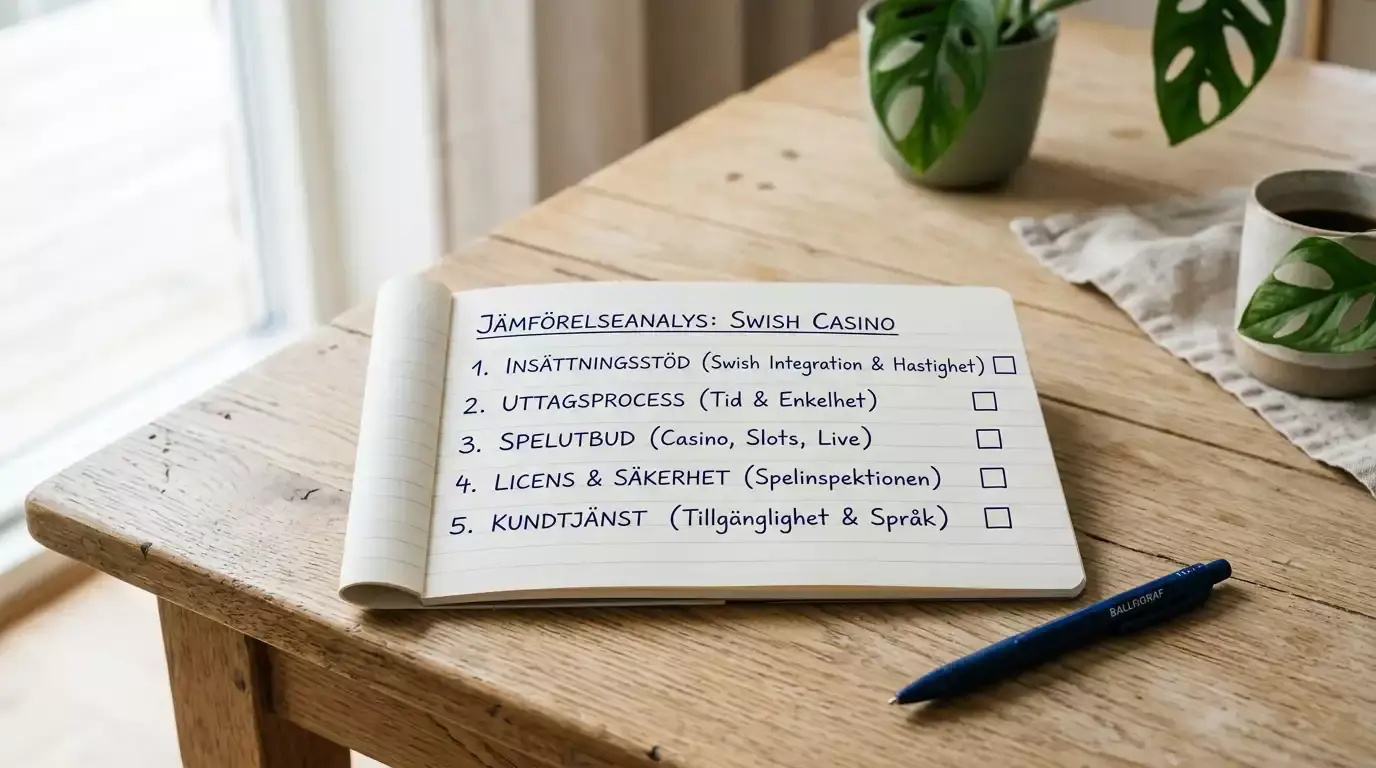 JÄMFÖRELSEANALYS: SWISH CASINO
1. INSÄTTNINGSSTÖD (Swish Integration & Hastighet)
2. UTTAGSPROCESS (Tid & Enkelhet)
3. SPELUTBUD (Casino, Slots, Live)
4. LICENS & SÄKERHET (Spelinspektionen)
5. KUNDTJÄNST (Tillgänglighet & Språk)